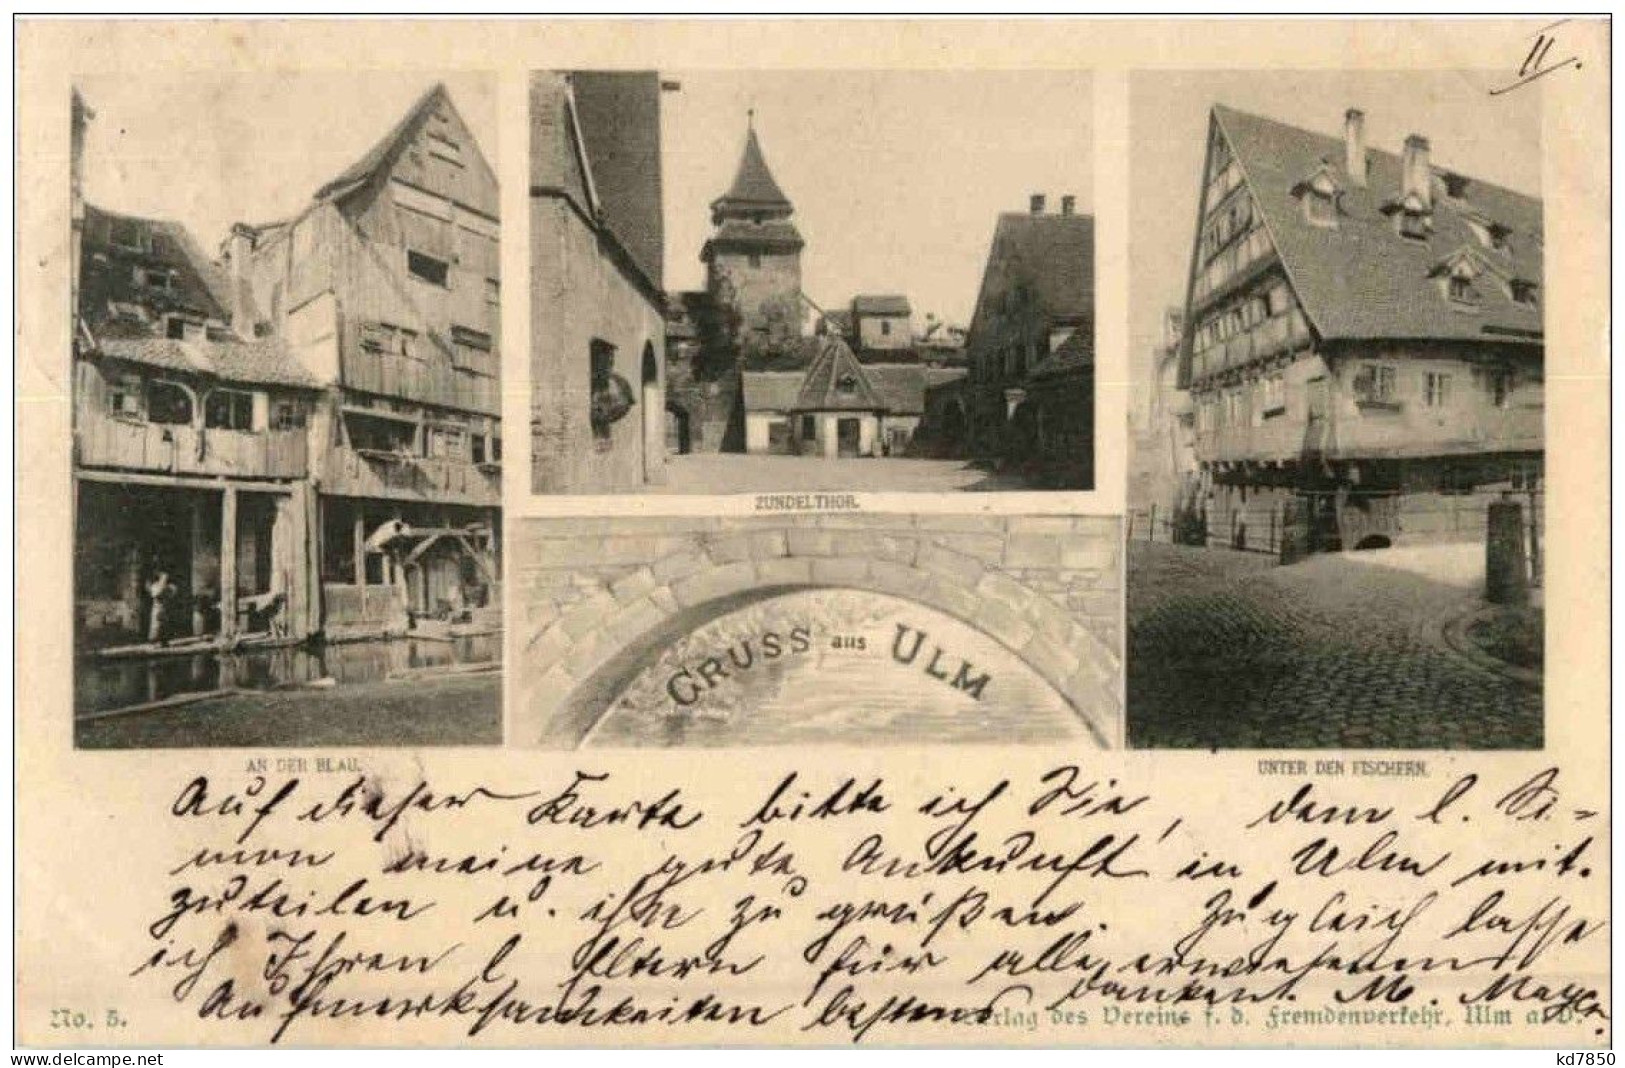 II.
ZUNDELTHOR.
GRUSS aus ULM
AN DER BLAU.
UNTER DEN FISCHERN.
Auf dieser Karte bitte ich Sie, dem l. Si=
mon meine gute Ankunft in Ulm mit.
zuteilen u. ihn zu grüßen. Zugleich lasse
ich Ihren l Eltern für alle erwiesenen
Aufmerksamkeiten bestens danken. M. Mayer.
No. 5.
Verlag des Vereins f. d. Fremdenverkehr, Ulm a. D.
kd7850